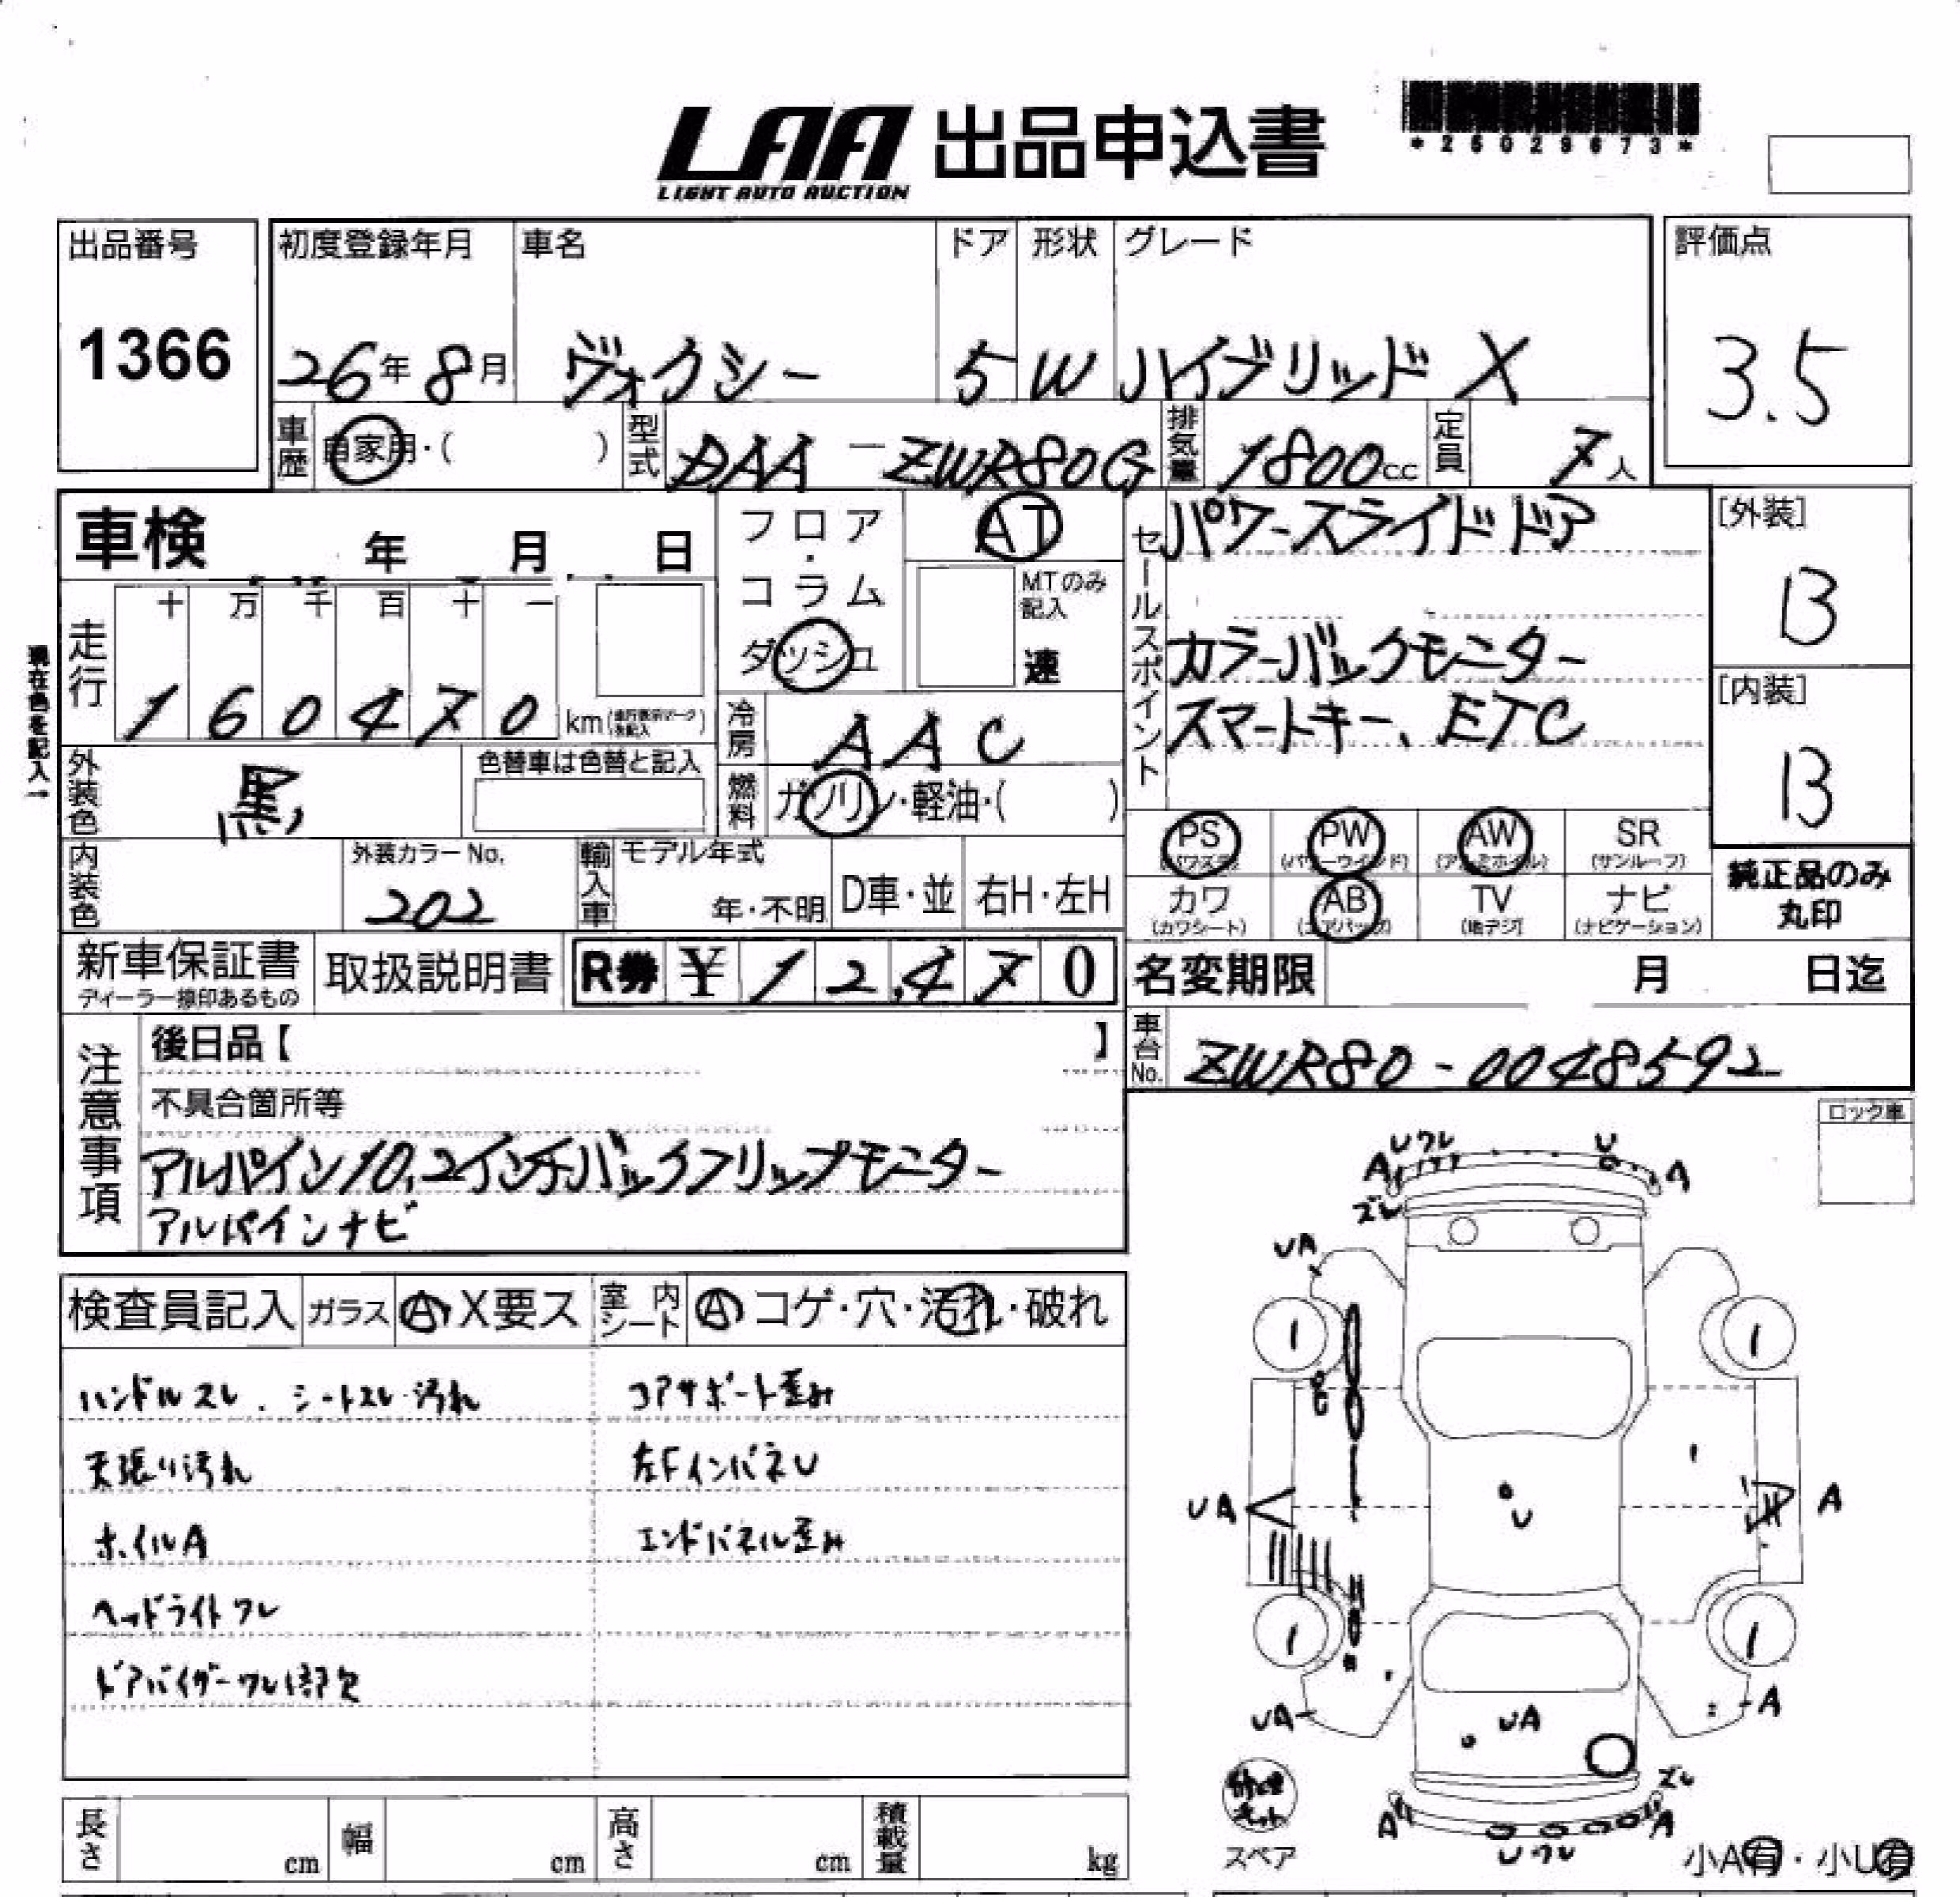 LAA 出品申込書
LIGHT AUTO AUCTION
*26029673*
出品番号
1366
初度登録年月
26年8月
車名
ヴォクシー
ドア
5
形状
W
グレード
ハイブリッド X
評価点
3.5
車歴
自家用・( )
型式
DAA-ZWR80G
排気量
1800cc
定員
7人
車検 年 月 日
フロア・コラム
ダッシュ
AT
MTのみ記入
速
セールスポイント
パワースライドドア
カラーバックモニター
スマートキー、ETC
[外装]
B
[内装]
B
現在色を記入→
走行
十 万 千 百 十 一
1 6 0 4 7 0 km
外装色
黒
色替車は色替と記入
冷房
AAC
燃料
ガソリン・軽油・( )
内装色
外装カラーNo.
202
輸入車
モデル年式
年・不明
D車・並
右H・左H
PS
(パワステ)
PW
(パワーウインド)
AW
(アルミホイル)
SR
(サンルーフ)
カワ
(カワシート)
AB
(エアバッグ)
TV
(地デジ)
ナビ
(ナビゲーション)
純正品のみ
丸印
新車保証書
ディーラー捺印あるもの
取扱説明書
R券 ¥12,470
名変期限 月 日迄
車台No.
ZWR80-0048592
注意事項
後日品【 】
不具合箇所等
アルパイン10.2インチバックフリップモニター
アルパインナビ
ロック車
検査員記入
ガラス
A・X要ス
室内シート
A・コゲ・穴・汚れ・破れ
ハンドルスレ、シートスレ・汚れ
コアサポート歪み
天張り汚れ
左FインパネU
ホイルA
エンドパネル歪み
ヘッドライトワレ
ドアバイザーワレ1部欠
Uワレ
U
A
A
ズレ
UA
1
1
UA
U
A
1
1
UA
UA
A
ズレ
A
A
Uワレ
修理キット
スペア
小A有・小U有
長さ cm
幅 cm
高さ cm
積載量 kg